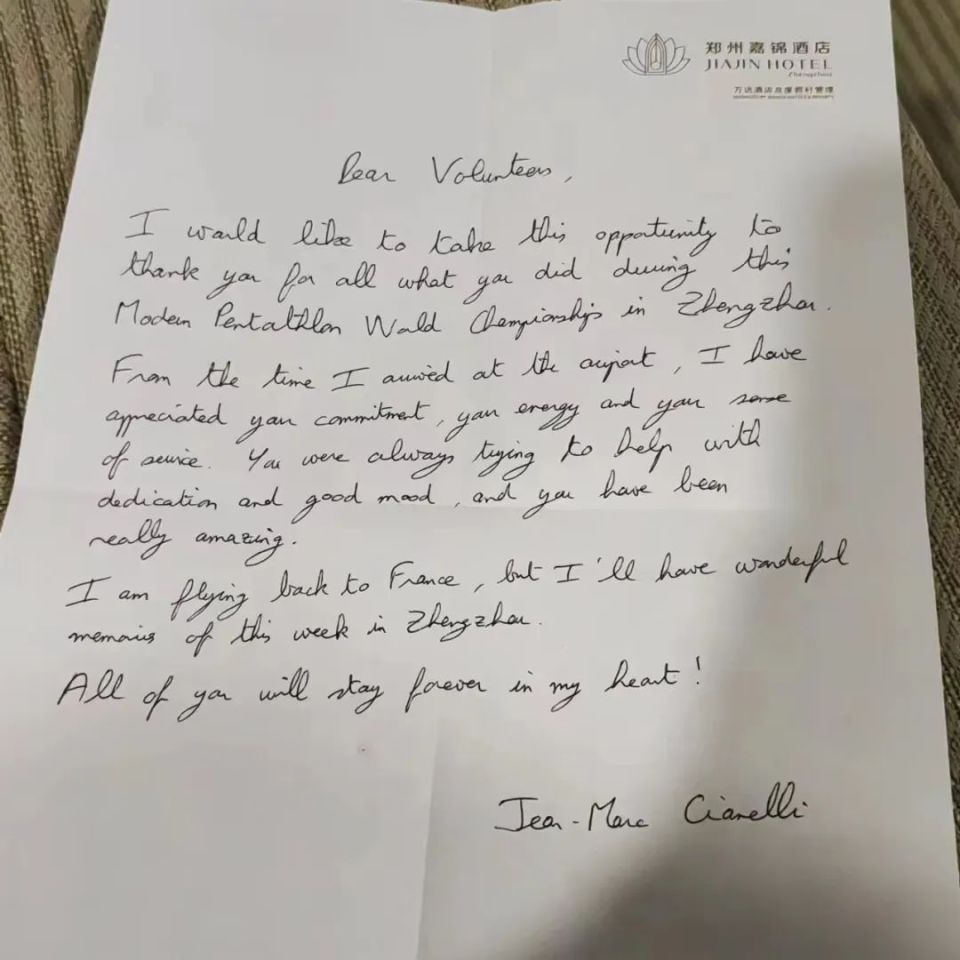 郑州嘉锦酒店
JIAJIN HOTEL
Zhengzhou
万达酒店及度假村管理
Dear Volunteers,
I would like to take this opportunity to
thank you for all what you did during this
Modern Pentathlon World Championships in Zhengzhou.
From the time I arrived at the airport, I have
appreciated your commitment, your energy and your sense
of service. You were always trying to help with
dedication and good mood, and you have been
really amazing.
I am flying back to France, but I'll have wonderful
memories of this week in Zhengzhou.
All of you will stay forever in my heart!
Jean-Marc Cianelli